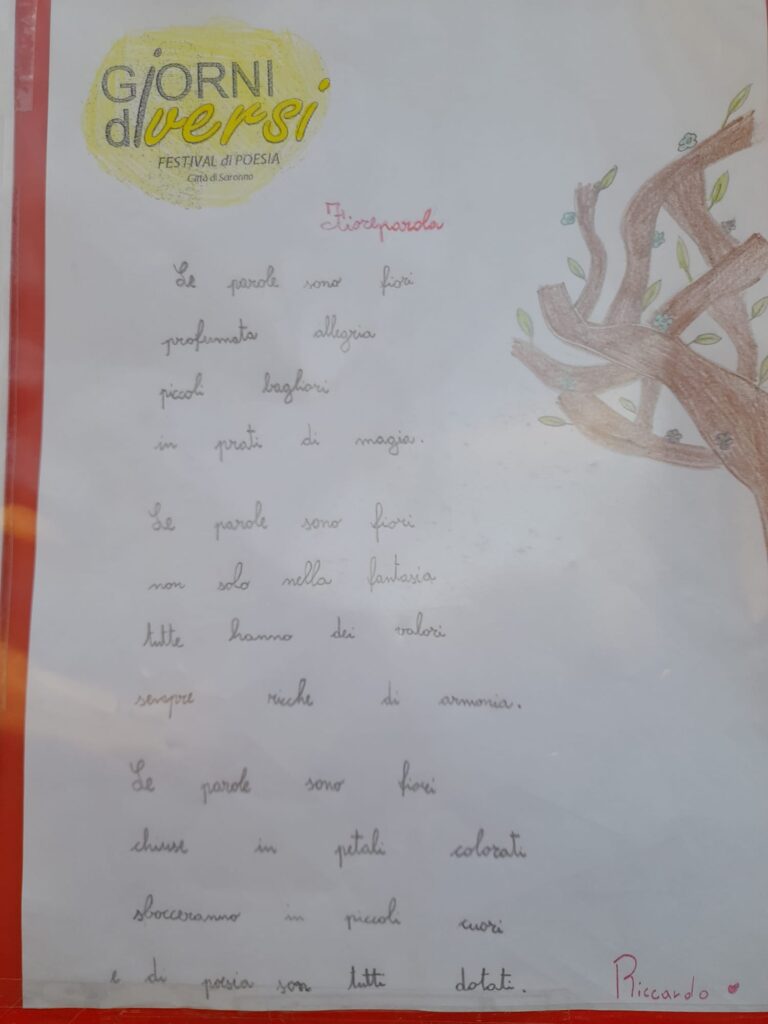 GiORNI
diversi
FESTIVAL di POESIA
Città di Saronno
Fioreparola
Le parole sono fiori
profumata allegria
piccoli bagliori
in prati di magia.
Le parole sono fiori
non solo nella fantasia
tutte hanno dei valori
sempre ricche di armonia.
Le parole sono fiori
chiuse in petali colorati
sbocceranno in piccoli cuori
e di poesia son tutti dotati.
Riccardo